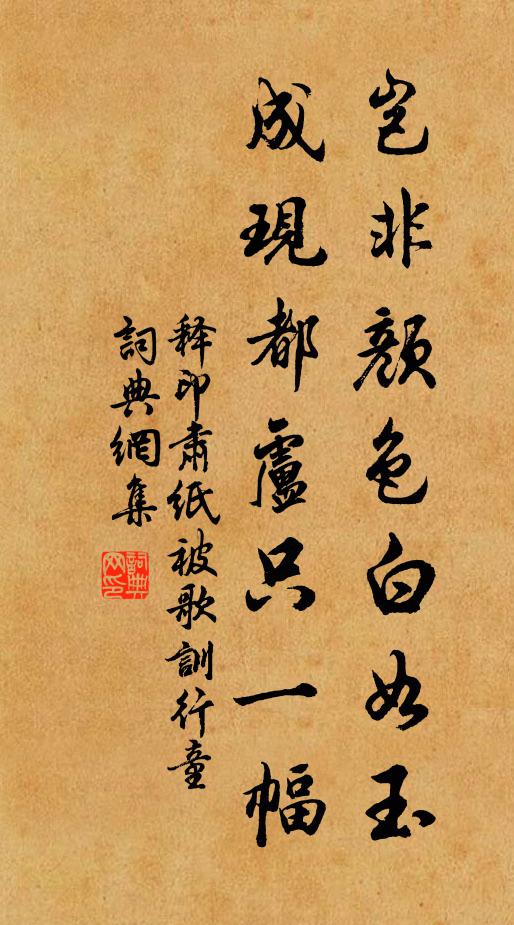 岂非顏色白如玉
成現都盧只一幅
释印肅紙被歌訓行童
詞典網集
詞典网印